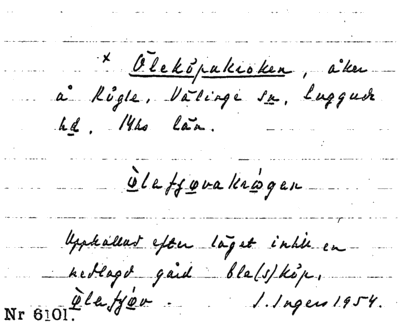 × Oleköpakroken, åker
å Rögle, Välinge sn, Luggude
hd, Mhs län.
Òlafjøvakrògen
Uppkallad efter läget intill en
nedlagd gård Ole(s)köp,
Òlafjøv. I. Ingers 1954.
Nr 6101.